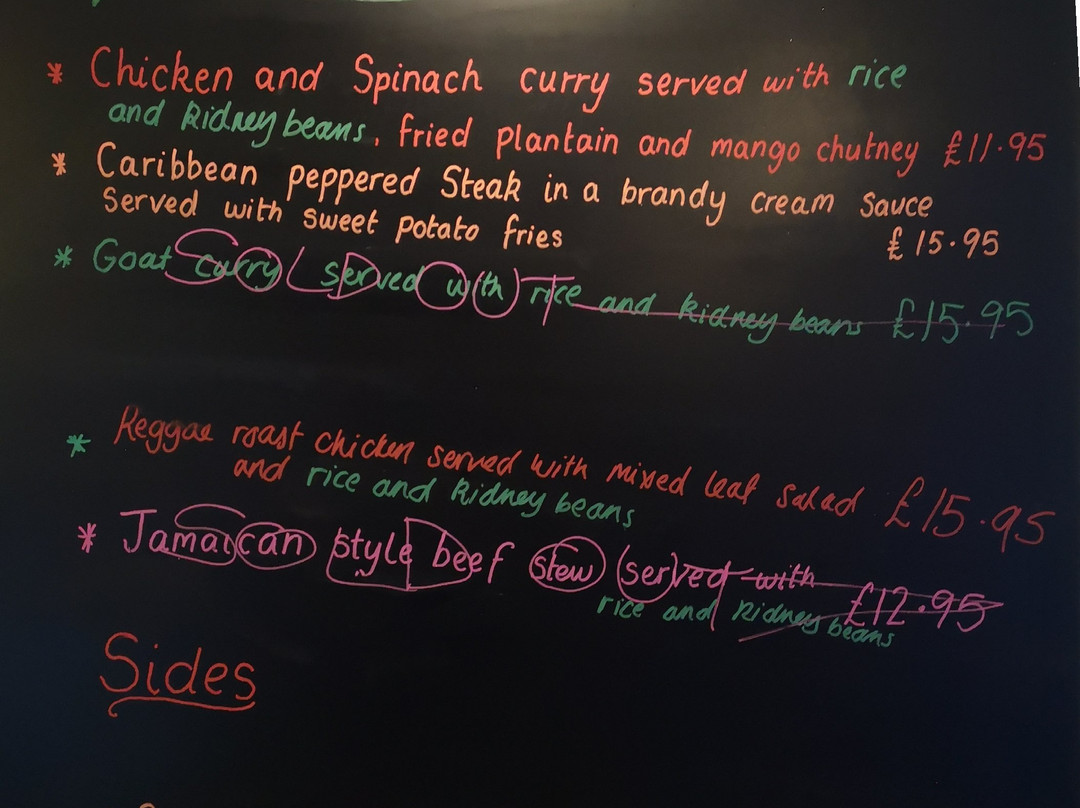 * Chicken and Spinach curry served with rice
and kidney beans, fried plantain and mango chutney £11.95
* Caribbean peppered Steak in a brandy cream sauce
Served with sweet potato fries £15.95
* Goat curry served with rice and kidney beans £15.95
SOLD OUT
* Reggae roast chicken served with mixed leaf salad £15.95
and rice and kidney beans
* Jamaican style beef stew served with £12.95
rice and kidney beans
SOLD OUT
Sides